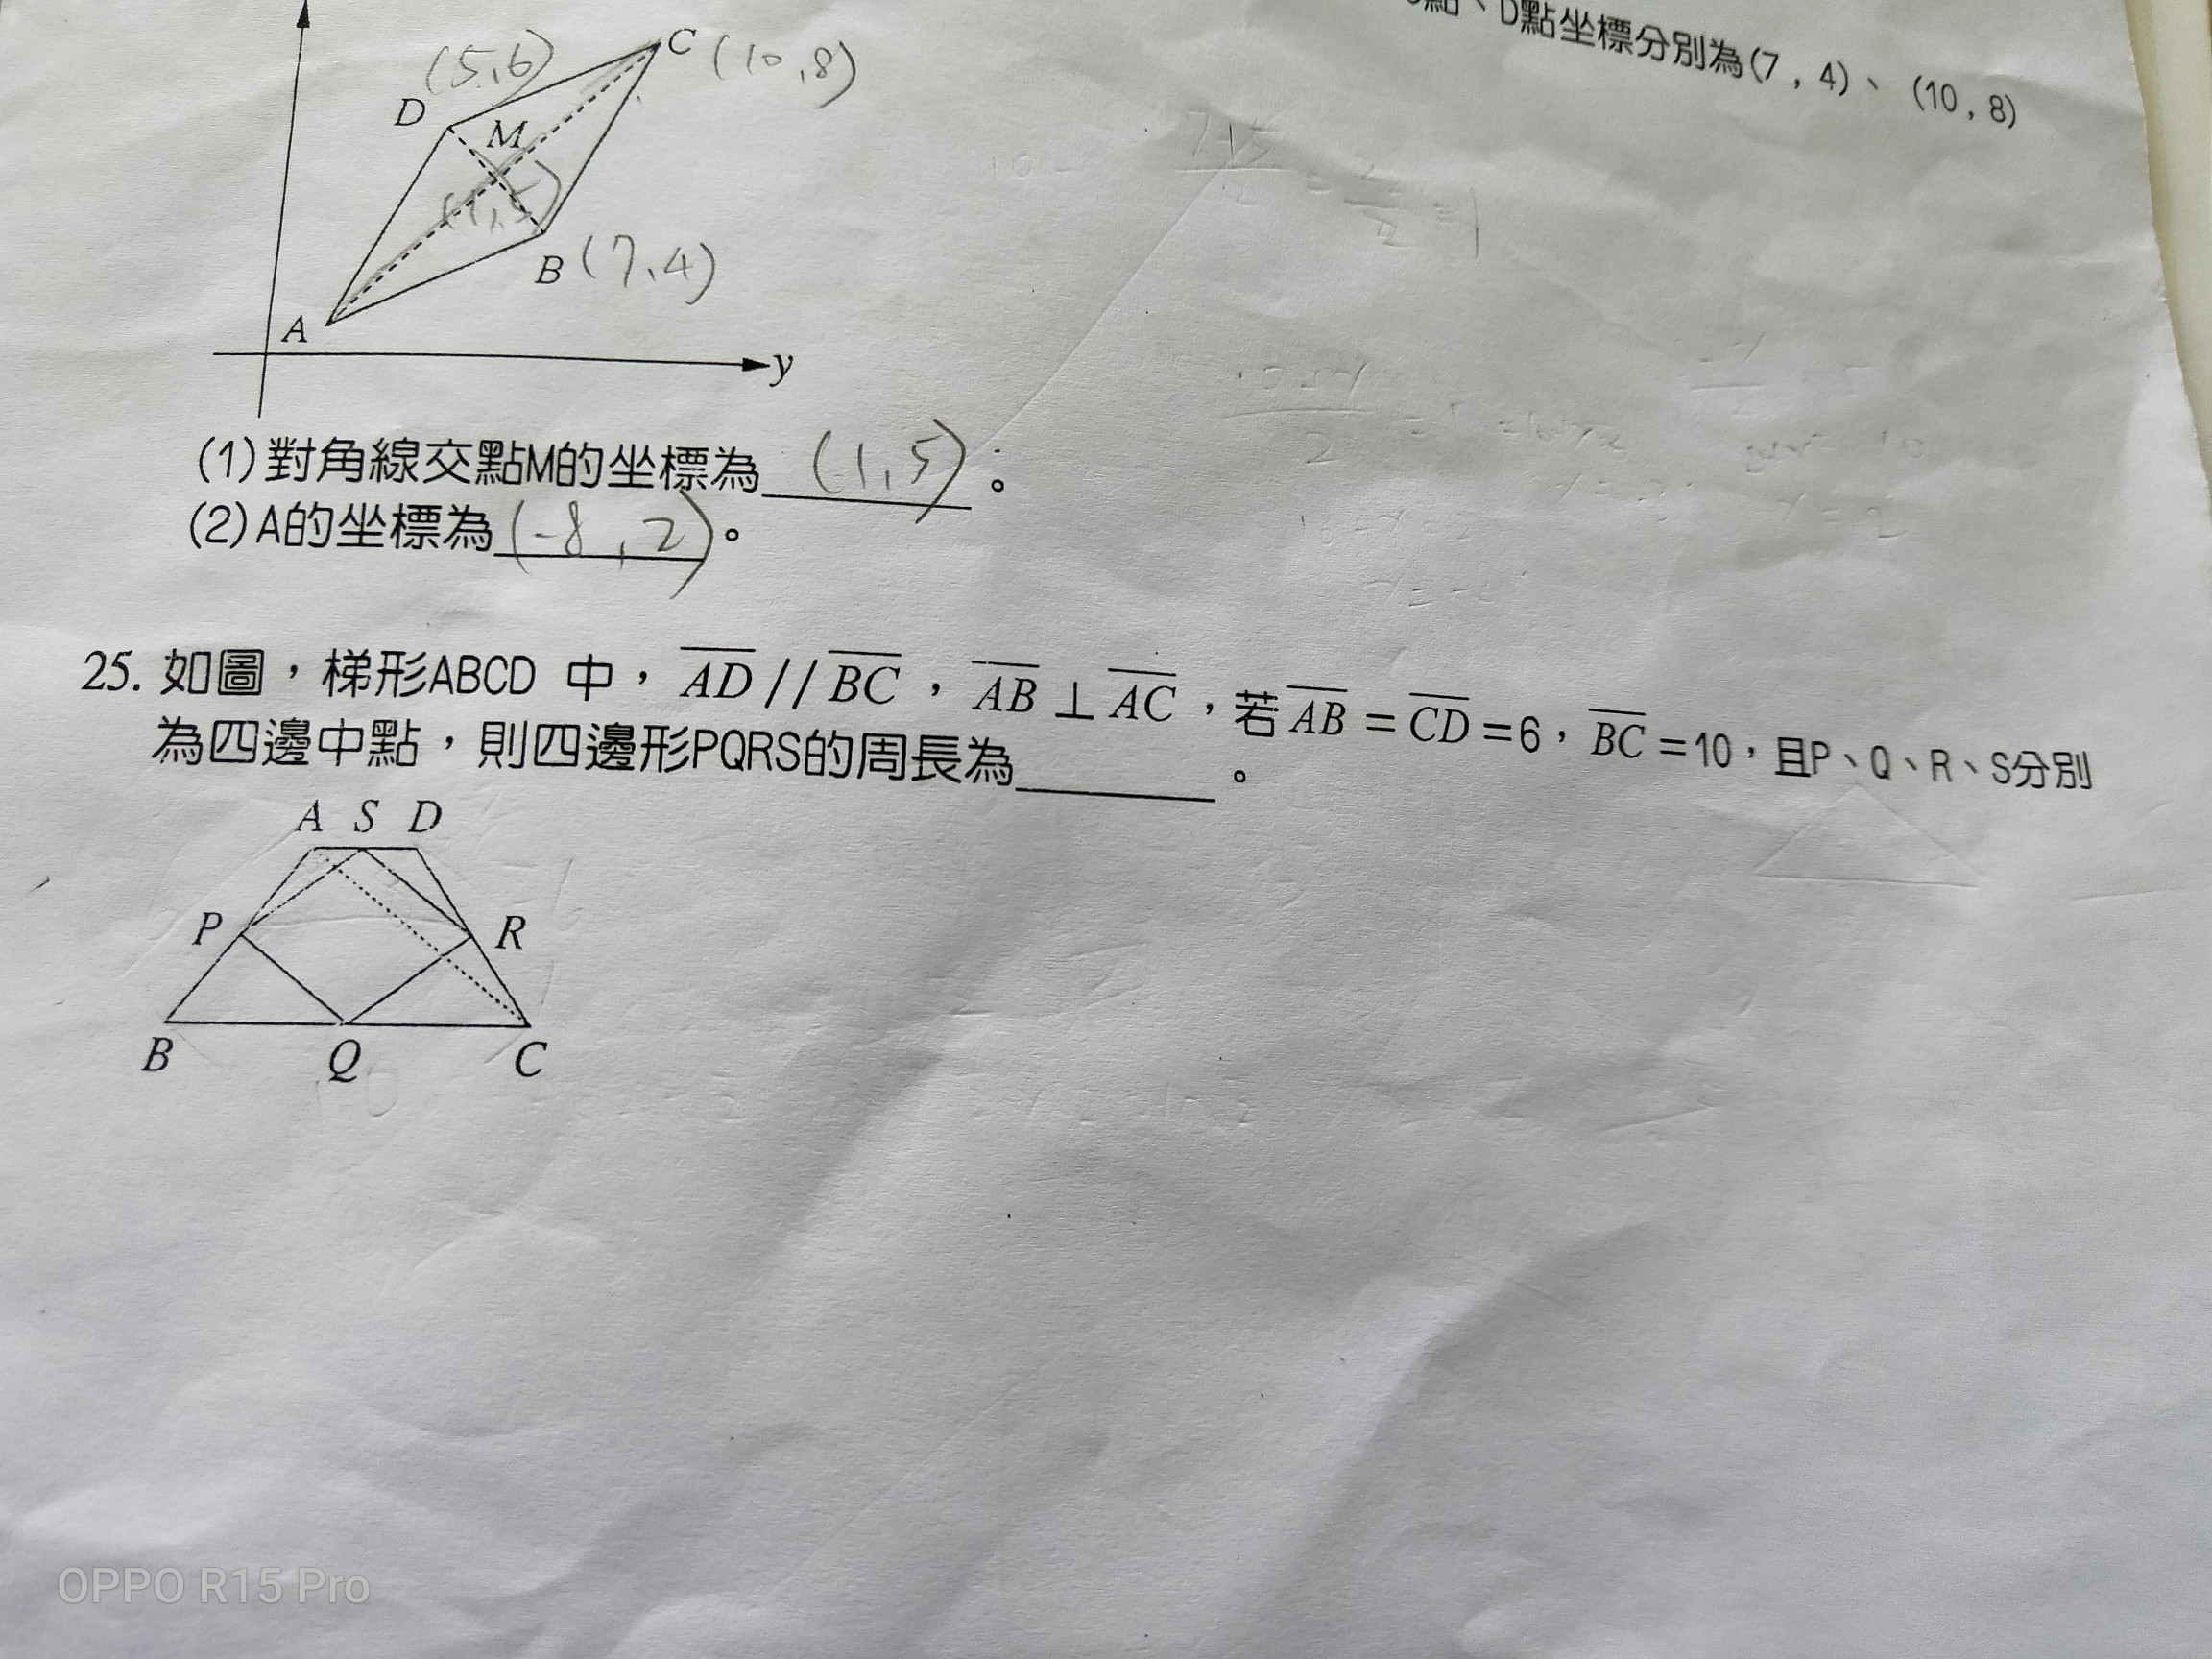 點、D點坐標分別為(7，4)、(10，8)
C (10,8)
(5,6)
D
M
(1,5)
B (7,4)
A
y
(1)對角線交點M的坐標為 (-1,5)。
(2)A的坐標為(-8,2)。
25. 如圖，梯形ABCD 中，AD // BC，AB ⊥ AC，若 AB = CD = 6，BC = 10，且P、Q、R、S分別
為四邊中點，則四邊形PQRS的周長為________。
A S D
P R
B Q C
OPPO R15 Pro